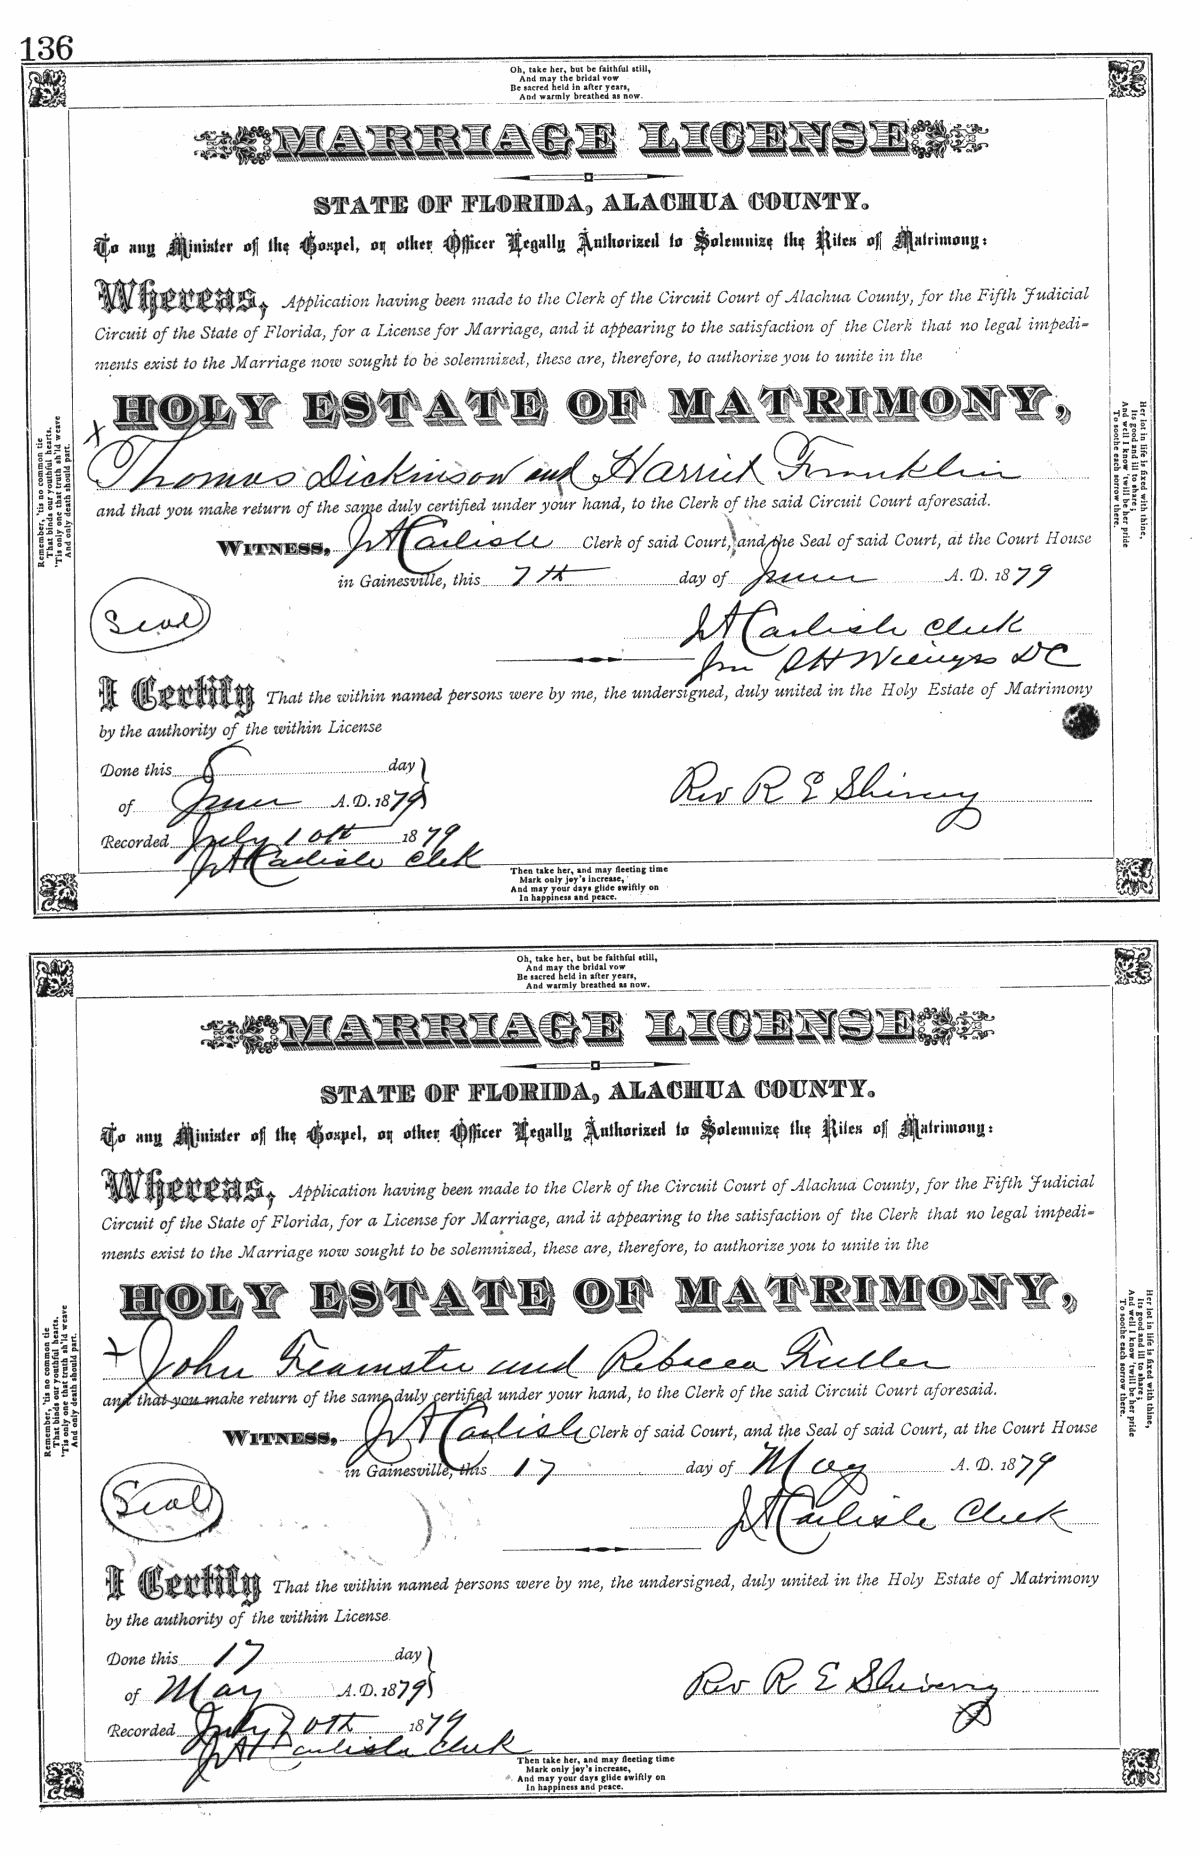 136
Oh, take her, but be faithful still,
And may the bridal vow
Be sacred held in after years,
And warmly breathed as now.
MARRIAGE LICENSE
STATE OF FLORIDA, ALACHUA COUNTY.
To any Minister of the Gospel, or other Officer Legally Authorized to Solemnize the Rites of Matrimony:
Whereas, Application having been made to the Clerk of the Circuit Court of Alachua County, for the Fifth Judicial
Circuit of the State of Florida, for a License for Marriage, and it appearing to the satisfaction of the Clerk that no legal impedi-
ments exist to the Marriage now sought to be solemnized, these are, therefore, to authorize you to unite in the
HOLY ESTATE OF MATRIMONY,
x
Thomas Dickinson and Harriet Franklin
and that you make return of the same duly certified under your hand, to the Clerk of the said Circuit Court aforesaid.
WITNESS, J A Carlisle Clerk of said Court, and the Seal of said Court, at the Court House
in Gainesville, this 7th day of June A. D. 1879
Seal
J A Carlisle Clerk
DC
I Certify That the within named persons were by me, the undersigned, duly united in the Holy Estate of Matrimony
by the authority of the within License
Done this 8 day
of June A. D. 1879
Rev R E Shivery
Recorded July 10th 1879
J A Carlisle Clerk
Then take her, and may fleeting time
Mark only joy's increase,
And may your days glide swiftly on
In happiness and peace.
Remember, 'tis no common tie
That binds our youthful hearts,
'Tis only one that truth sh'ld weave
And only death should part.
Her lot in life is fixed with thine,
Its good and ill to share;
And well I know 'twill be her pride
To soothe each sorrow there.
Oh, take her, but be faithful still,
And may the bridal vow
Be sacred held in after years,
And warmly breathed as now.
MARRIAGE LICENSE
STATE OF FLORIDA, ALACHUA COUNTY.
To any Minister of the Gospel, or other Officer Legally Authorized to Solemnize the Rites of Matrimony:
Whereas, Application having been made to the Clerk of the Circuit Court of Alachua County, for the Fifth Judicial
Circuit of the State of Florida, for a License for Marriage, and it appearing to the satisfaction of the Clerk that no legal impedi-
ments exist to the Marriage now sought to be solemnized, these are, therefore, to authorize you to unite in the
HOLY ESTATE OF MATRIMONY,
x
John Feamster and Rebecca Fuller
and that you make return of the same duly certified under your hand, to the Clerk of the said Circuit Court aforesaid.
WITNESS, J A Carlisle Clerk of said Court, and the Seal of said Court, at the Court House
in Gainesville, this 17 day of May A. D. 1879
Seal
J A Carlisle Clerk
I Certify That the within named persons were by me, the undersigned, duly united in the Holy Estate of Matrimony
by the authority of the within License
Done this 17 day
of May A. D. 1879
Rev R E Shivery
Recorded July 10th 1879
J A Carlisle Clerk
Then take her, and may fleeting time
Mark only joy's increase,
And may your days glide swiftly on
In happiness and peace.
Remember, 'tis no common tie
That binds our youthful hearts,
'Tis only one that truth sh'ld weave
And only death should part.
Her lot in life is fixed with thine,
Its good and ill to share;
And well I know 'twill be her pride
To soothe each sorrow there.